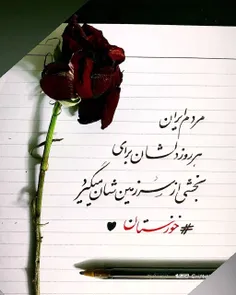 مردم ایران
هر روز دلشان برای
بخشی از سرزمین شان میگیرد
#خوزستان